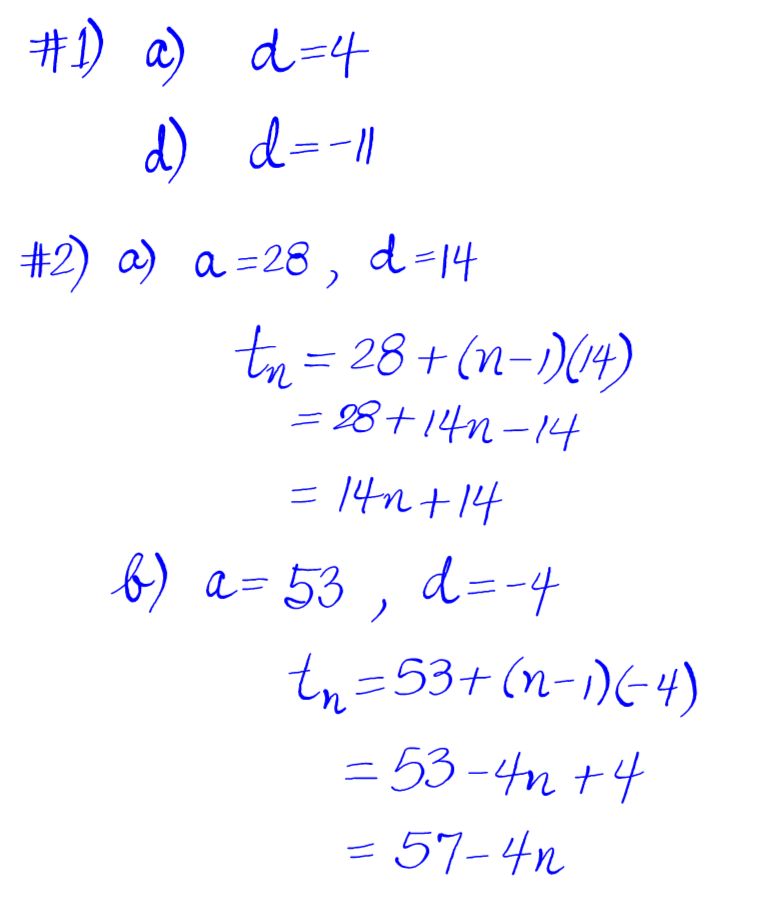 #1) a) d=4
d) d=-11
#2) a) a=28, d=14
tₙ = 28+(n-1)(14)
= 28+14n-14
= 14n+14
b) a=53, d=-4
tₙ=53+(n-1)(-4)
=53-4n+4
=57-4n